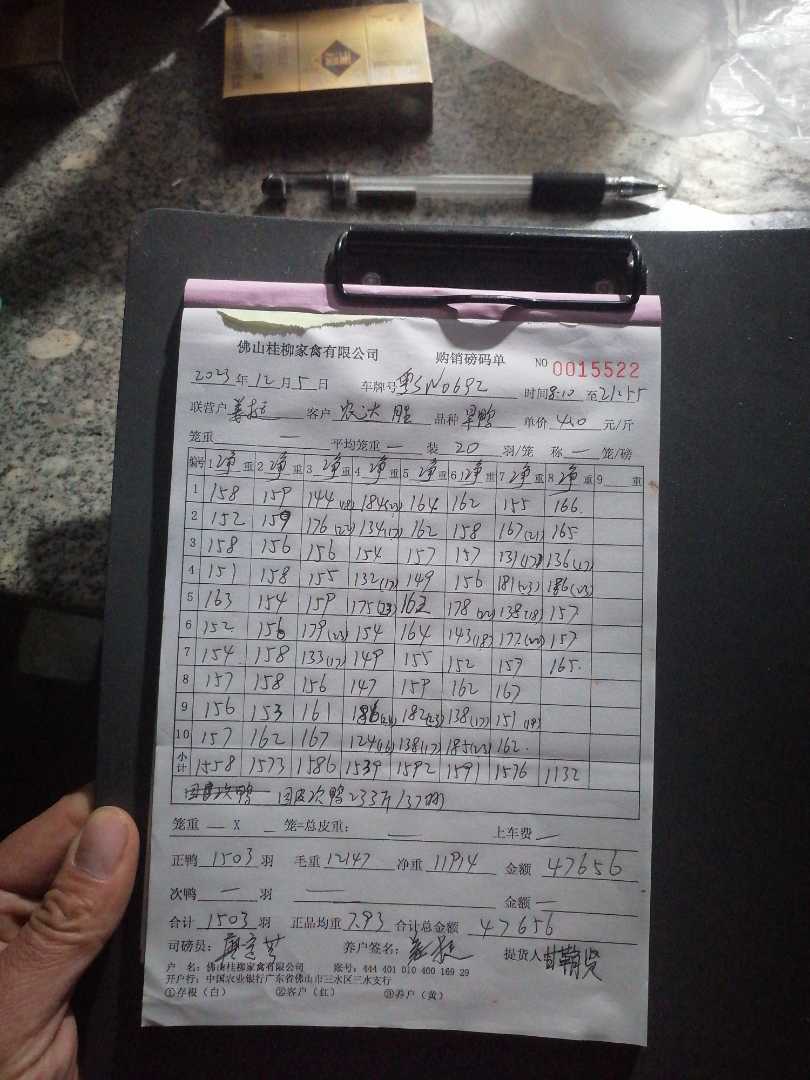 佛山桂柳家禽有限公司 购销磅码单 NO 0015522
2023年12月5日 车牌号 粤SN0692 时间8:10 至21:55
联营户 客户 农达 品种 单价 4.0 元/斤
笼重 — 平均笼重 — 装 20 羽/笼 称 — 笼/磅
编号 1 净重 2 净重 3 净重 4 净重 5 净重 6 净重 7 净重 8 净重 9 重
1 158 159 144(18) 184(23) 164 162 155 166
2 152 159 176(22) 134(17) 162 158 167(21) 165
3 158 156 156 154 157 157 131(17) 136(17)
4 151 158 155 132(17) 149 156 181(23) 186(23)
5 163 154 159 175(23) 162 178(22) 138(18) 157
6 152 156 179(23) 154 164 143(18) 177(22) 157
7 154 158 133(17) 149 155 152 157 165
8 157 158 156 147 159 162 167
9 156 153 161 186(24) 182(23) 138(17) 151(19)
10 157 162 167 124(16) 138(17) 185(23) 162
小计 1558 1573 1586 1539 1592 1591 1576 1132
回皮次鸭 233斤/37羽
笼重 — X — 笼=总皮重: — 上车费 —
正鸭 1503 羽 毛重 12147 净重 11914 金额 47656
次鸭 — 羽 — 金额 —
合计 1503 羽 正品均重 7.93 合计总金额 47656
司磅员: 养户签名: 提货人
户 名: 佛山桂柳家禽有限公司 账号: 444 401 010 400 169 29
开户行: 中国农业银行广东省佛山市三水区三水支行
①存根(白) ②客户(红) ③养户(黄)